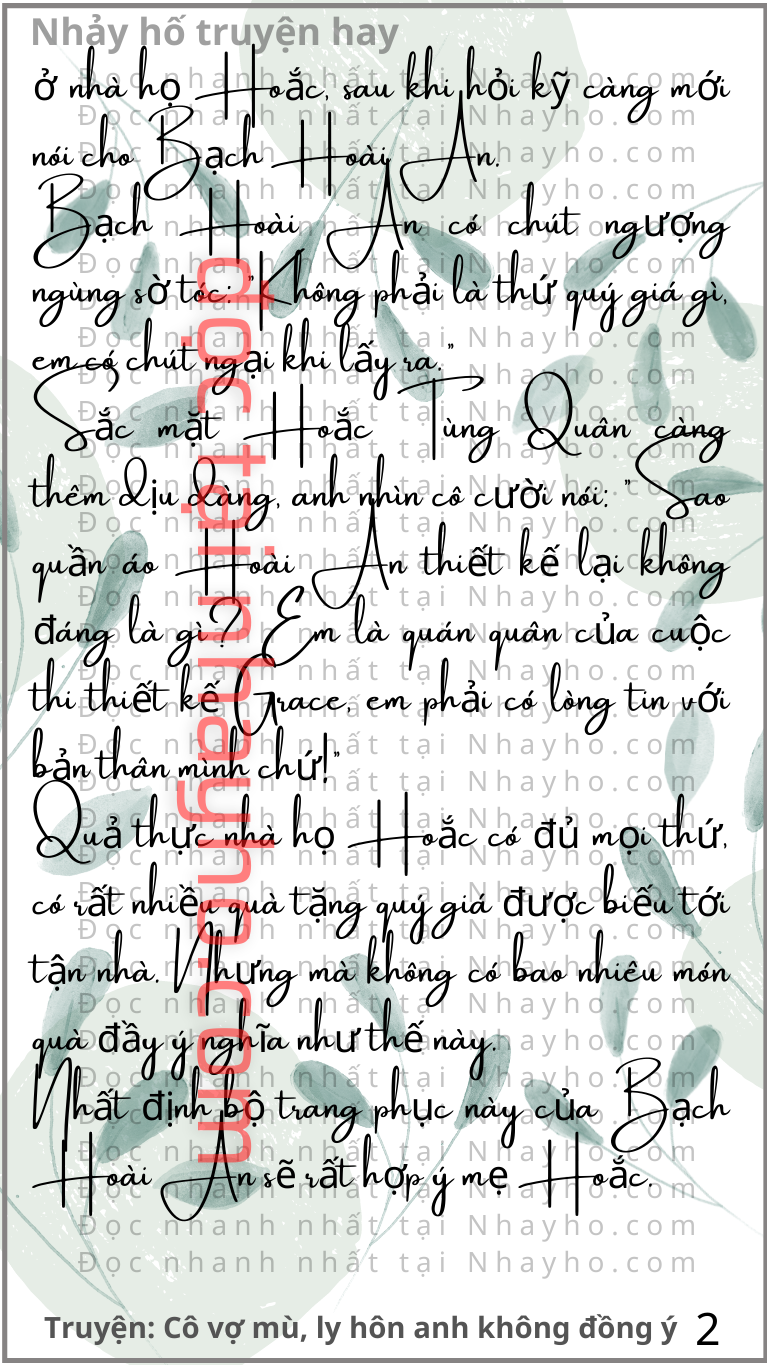 Nhảy hố truyện hay
ở nhà họ Hoắc, sau khi hỏi kỹ càng mới
nói cho Bạch Hoài An.
Bạch Hoài An có chút ngượng
ngùng sờ tóc: "Không phải là thứ quý giá gì,
em có chút ngại khi lấy ra."
Sắc mặt Hoắc Tùng Quân càng
thêm dịu dàng, anh nhìn cô cười nói: "Sao
quần áo Hoài An thiết kế lại không
đáng là gì? Em là quán quân của cuộc
thi thiết kế Grace, em phải có lòng tin với
bản thân mình chứ!"
Quả thực nhà họ Hoắc có đủ mọi thứ,
có rất nhiều quà tặng quý giá được biếu tới
tận nhà. Nhưng mà không có bao nhiêu món
quà đầy ý nghĩa như thế này.
Nhất định bộ trang phục này của Bạch
Hoài An sẽ rất hợp ý mẹ Hoắc.
đọc tại nhayho.com
Đọc nhanh nhất tại Nhayho.com
Đọc nhanh nhất tại Nhayho.com
Truyện: Cô vợ mù, ly hôn anh không đồng ý 2